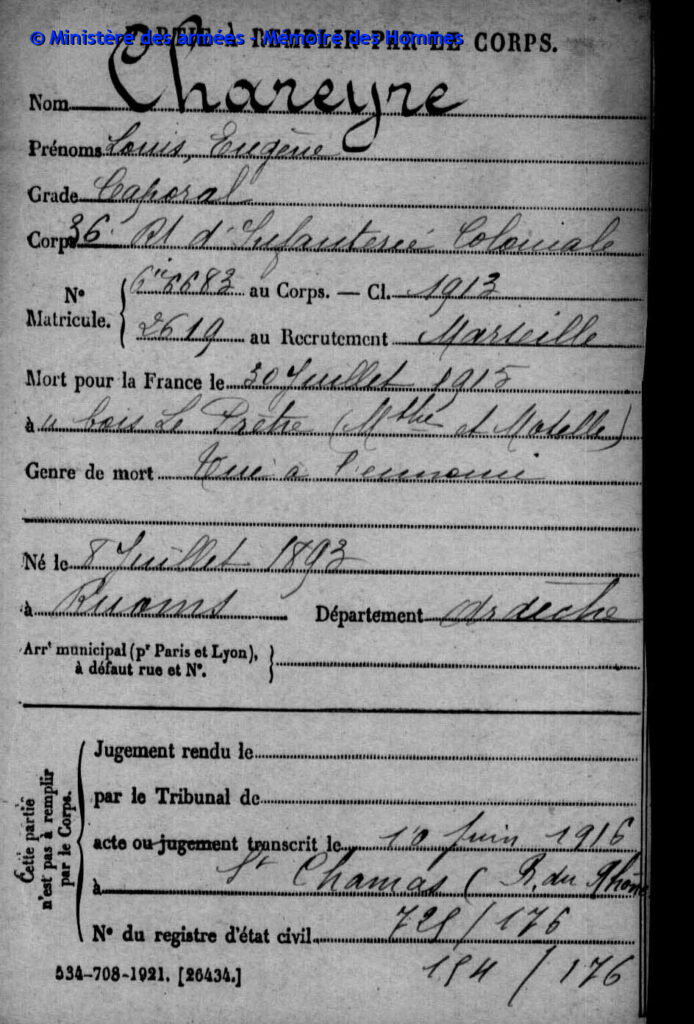 © Ministère des armées - Mémoire des Hommes
À REMPLIR PAR LE CORPS.
Nom Chareyre
Prénoms Louis, Eugène
Grade Caporal
Corps 36 Rt d'Infanterie Coloniale
N° Matricule. 6683 au Corps. — Cl. 1913
2619 au Recrutement Marseille
Mort pour la France le 30 Juillet 1915
à bois Le Prêtre (Mthe et Moselle)
Genre de mort Tué à l'ennemi
Né le 8 Juillet 1893
à Ruoms Département Ardèche
Arrt municipal (pr Paris et Lyon),
à défaut rue et N°.
Cette partie n'est pas à remplir par le Corps.
Jugement rendu le
par le Tribunal de
acte ou jugement transcrit le 10 Juin 1916
à St Chamas (B. du Rhône
N° du registre d'état civil 725/176
154/176
534-708-1921. [26434.]